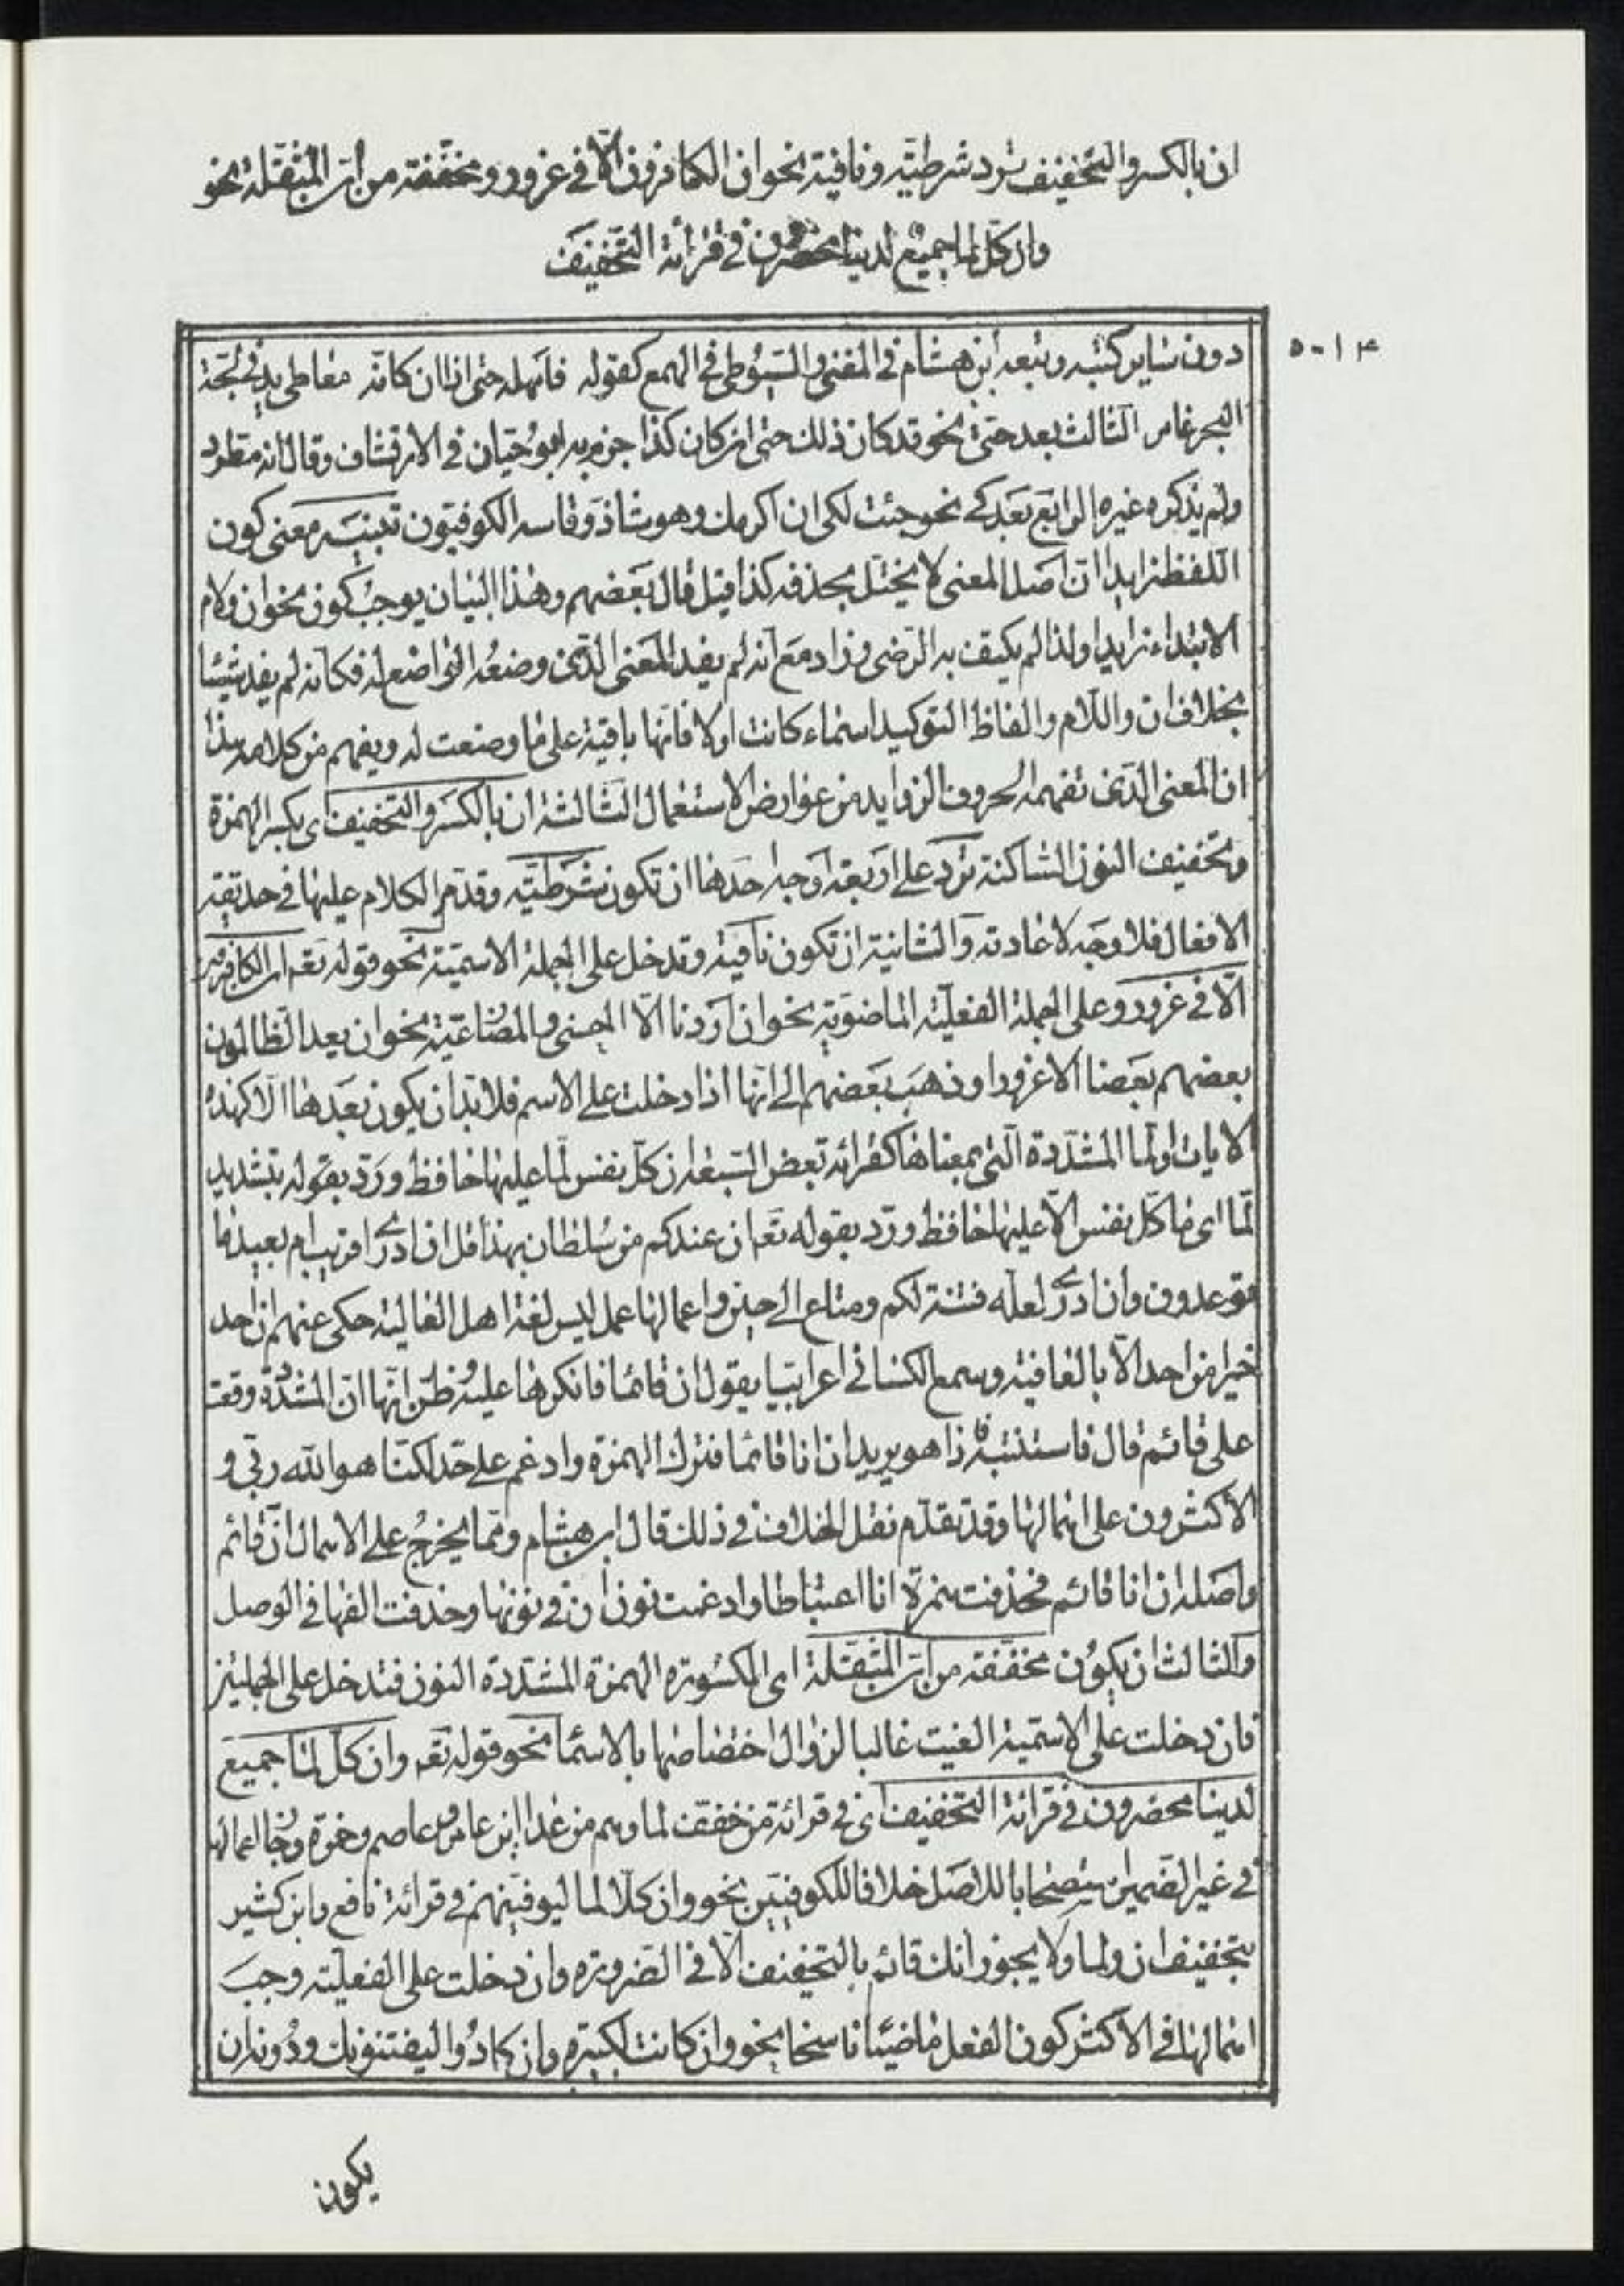 ان بالكسر والتخفيف ترد شرطيّه ونافية نحو ان الكافرون الّا فى غرور ومخفّفة من انّ المثقّلة نحو
وان كلّ لما جميع لدينا محضرون فى قرائة التّخفيف
۵۰۱۴
دون ساير كتبه وتبعه ابن هشام فى المغنى والسّيوطى فى الهمع كقوله فامهله حتى اذا ان كانّه معاطى يد فى لجّة
البحر غامر الثالث بعد حتى نحو قد كان ذلك حتى ان كان كذا جزم به ابو حيّان فى الارتشاف وقال انه مطرد
ولم يذكره غيره الرابع بعد كے نحو جئت لكى ان اكرمك وهو شاذ وقاسه الكوفيّون تنبيه معنى كون
اللفظ زايدا انّ اصل المعنى لا يختلّ بحذفه كذا قيل قال بعضهم وهذا البيان يوجب كون نحو ان ولام
الابتداء زايدا ولذا لم يكتف به الرّضى وزاد مع انه لم يفد المعنى الّذى وضعه الواضع له فكانه لم يفد شيئا
بخلاف ان واللام والفاظ التوكيد اسماء كانت اولا فانّها باقية على ما وضعت له ويفهم من كلامه هذا
ان المعنى الّذى تفهمه الحروف الزوايد من عوارض الاستعمال الثالثة ان بالكسر والتخفيف اى بكسر الهمزة
وتخفيف النون الساكنة ترد على اربعة اوجه احدها ان تكون شرطيّه وقد مر الكلام عليها فى حديقة
الافعال فلا وجه لاعادته والثانية ان تكون نافية وتدخل على الجملة الاسميّة نحو قوله تعم ان الكافرون
الّا فى غرور وعلى الجملة الفعليّة الماضويّة نحو ان اردنا الّا الحسنى والمضارعيّة نحو ان يعد الظالمون
بعضهم بعضا الا غرورا وذهب بعضهم الى انّها اذا دخلت على الاسم فلا بدّ ان يكون بعدها الّا كهذه
الايات او لمّا المشدّدة الّتى بمعناها كقرائة بعض السّبعة ان كلّ نفس لمّا عليها حافظ وردّ بقوله بتشديد
لمّا اى ما كلّ نفس الّا عليها حافظ وردّ بقوله تعم ان عندكم من سلطان بهذا قل ان ادرے اقريب ام بعيد ما
توعدون وان ادرے لعلّه فتنة لكم ومتاع الى حين واعمالها عمل ليس لغة اهل العالية حكى عنهم ان احد
خيرا من احد الّا بالعافية وسمع الكسائى اعرابيّا يقول ان قائما فانكرها عليه وظنّ انّها انّ المشدّدة وقعت
على قائم قال فاستثبته فاذا هو يريد ان انا قائما فترك الهمزة وادغم على حدّ لكنّا هو الله ربّى و
الاكثرون على اهمالها وقد تقدّم نقل الخلاف فى ذلك قال ابن هشام وممّا يخرج على الاهمال انّ قائم
واصله ان انا قائم فحذفت همزة انا اعتباطا وادغمت نون ان فى نونها وحذفت الفها فى الوصل
والثالث ان يكون مخفّفة من انّ المثقّلة اى المكسورة الهمزة المشدّدة النون فتدخل على الجملتين
فان دخلت على الاسمية الغيت غالبا لزوال اختصاصها بالاسماء نحو قوله تعم وان كلّ لمّا جميع
لدينا محضرون فى قرائة التخفيف اى فى قرائة من خفّف لما وهم من عدا ابن عامر وعاصم وحمزة وجاء اعمالها
فى غير الضمير استصحابا للاصل خلافا للكوفيّين نحو وان كلّا لما ليوفّينهم فى قرائة نافع وابن كثير
بتخفيف ان ولما ولا يجوز انك قائم بالتخفيف الّا فى الضرورة وان دخلت على الفعليّة وجب
اهمالها فى الاكثر كون الفعل ماضيا ناسخا نحو وان كانت لكبيرة وان كادوا ليفتنونك ودونه ان
يكون